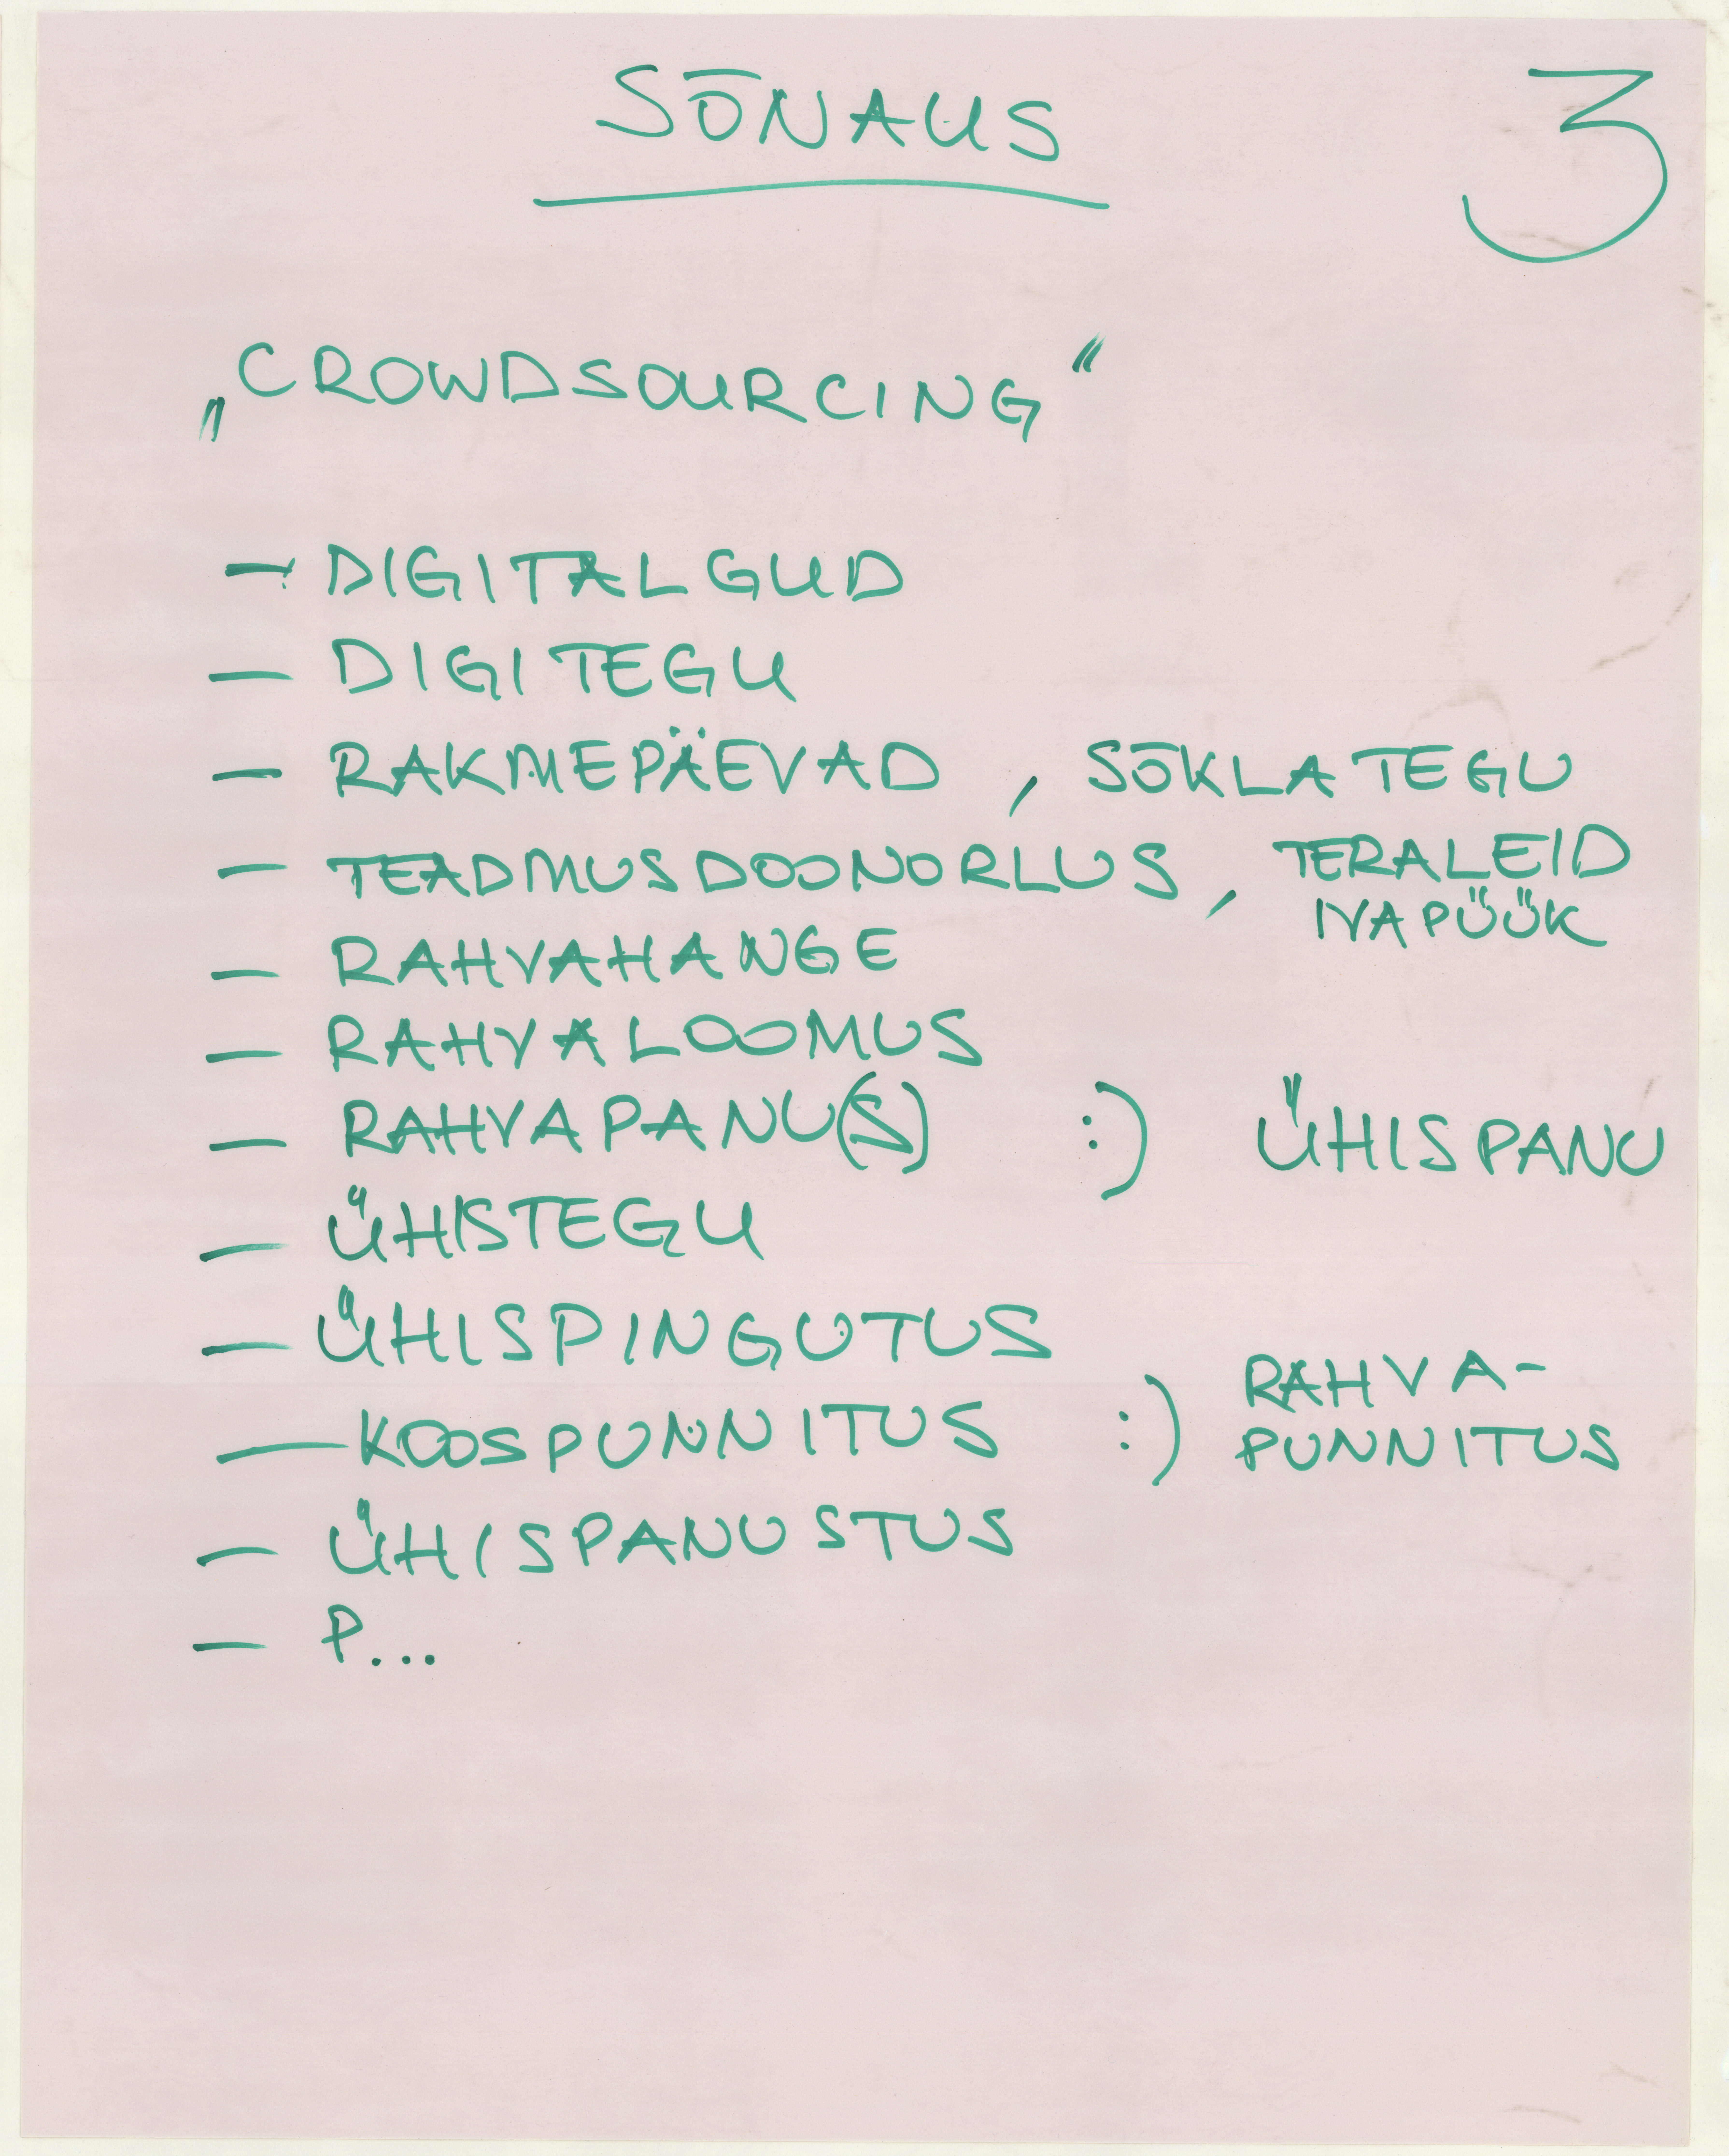 SÕNAUS
3
„CROWDSOURCING“
– DIGITALGUD
– DIGITEGU
– RAKMEPÄEVAD, SÕKLATEGU
– TEADMUSDOONORLUS, TERALEID
IVAPÜÜK
– RAHVAHANGE
– RAHVALOOMUS
– RAHVAPANU(S) :) ÜHISPANU
– ÜHISTEGU
– ÜHISPINGUTUS
– KOOSPUNNITUS :) RAHVA-
PUNNITUS
– ÜHISPANUSTUS
– P...